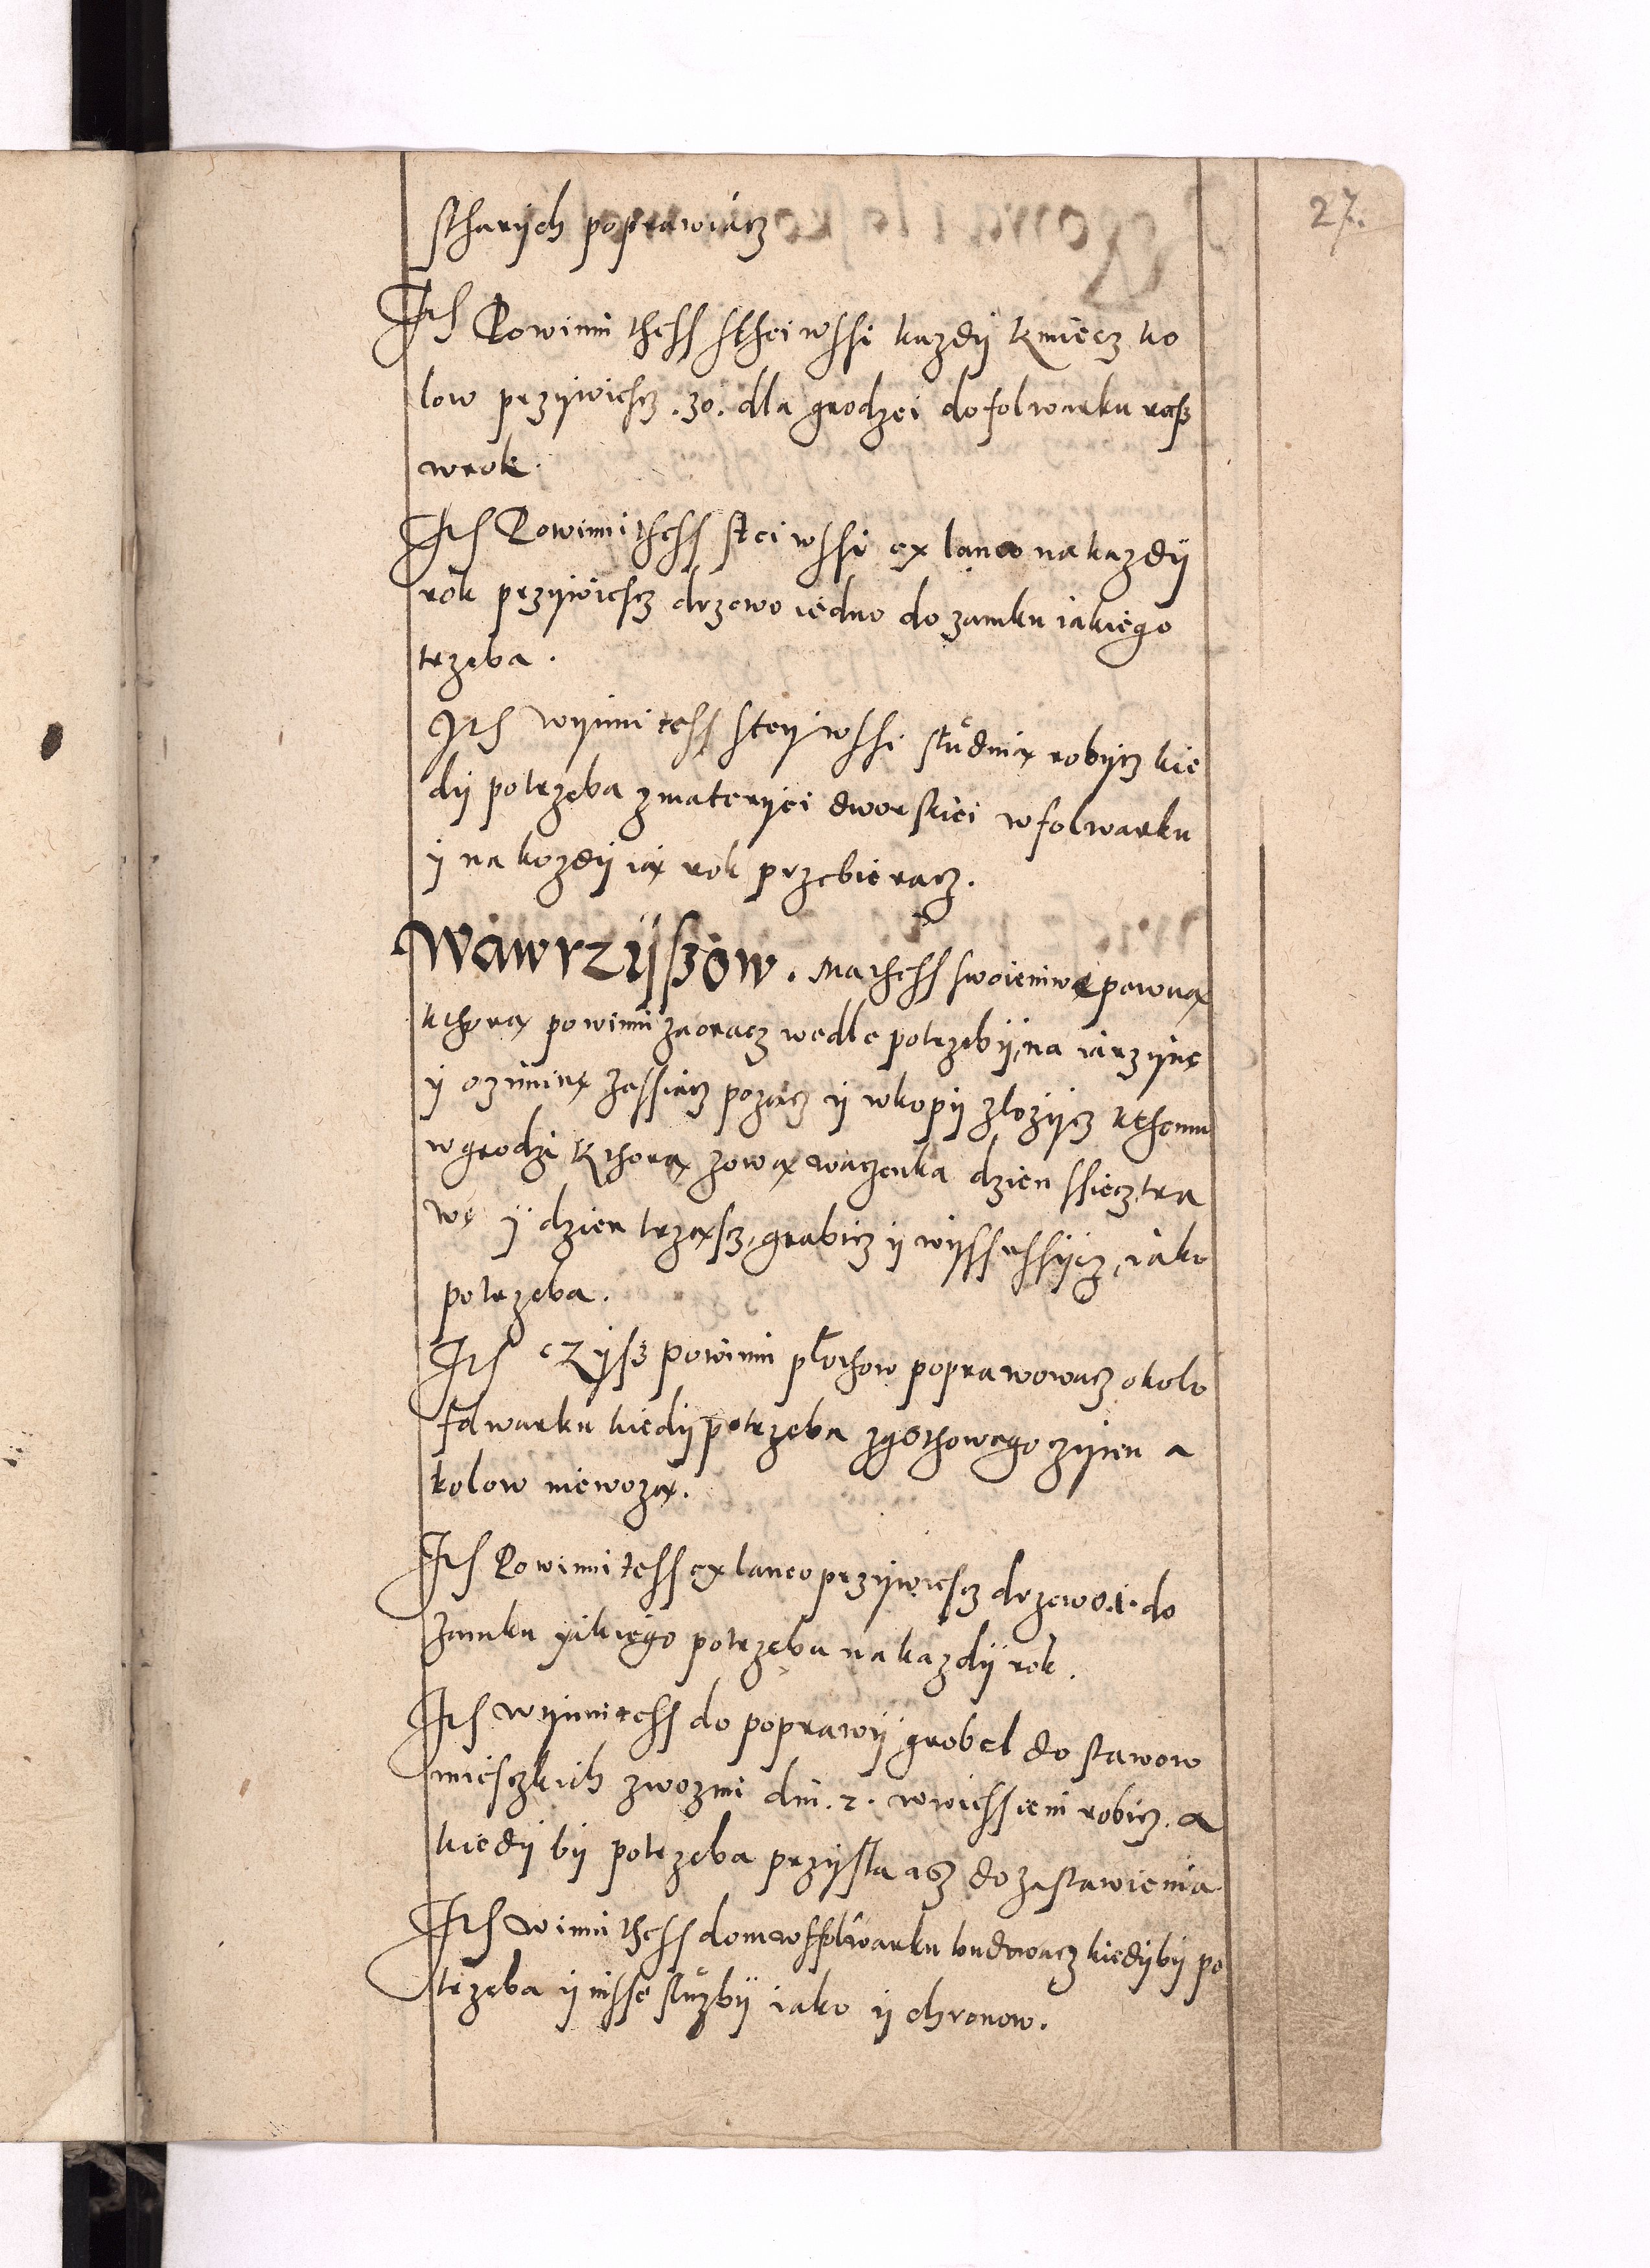 27.
stharÿch poprawiacz
Its Powinni thess sthei wssi kazdÿ kmiecz ko
low przÿwiescz .30. dla grodzei do folwarku rasz
wrok.
Its Powinni thess stei wssi ex laneo na kazdÿ
rok przÿwiescz drzewo iedno do zamku iakiego
trzeba.
Its wÿnni tess steÿ wssi studnią robÿcz kie
dÿ potrzeba zmaterÿei dworskiei wfolwarku
ÿ na kozdÿ ią rok przebieracz.
Wawrzÿszow. ma thess swoie niwę pewną
kthorą powinni zaoracz wedle potrzebÿ, na iarzÿnę
ÿ oziminę zassiacz pozącz ÿ wkopÿ zlozÿcz kthemu
w grodzi kthorą zową wączenka dzien ssiecz tra
wę ÿ dzien trząscz, grabicz ÿ wÿssussÿcz, iako
potrzeba.
Its czÿsz powinni plothow poprawowacz okolo
folwarku kiedÿ potrzeba zgothowego czÿnen a
kolow niewozą.
Its Powinni tess ex laneo przÿwiescz drzewo .1. do
zamku ÿakiego potrzeba na kazdÿ rok.
Its wÿnni tess do poprawÿ grobel do stawow
miesczkich zwozmi dni .2. wwiessieni robicz. a
kiedÿ bÿ potrzeba przÿsla asz do zastawienia
Its winni thess dom wffolwarku budowacz kiedÿ bÿ po
trzeba ÿ insse sluzbÿ iako ÿ chronow.